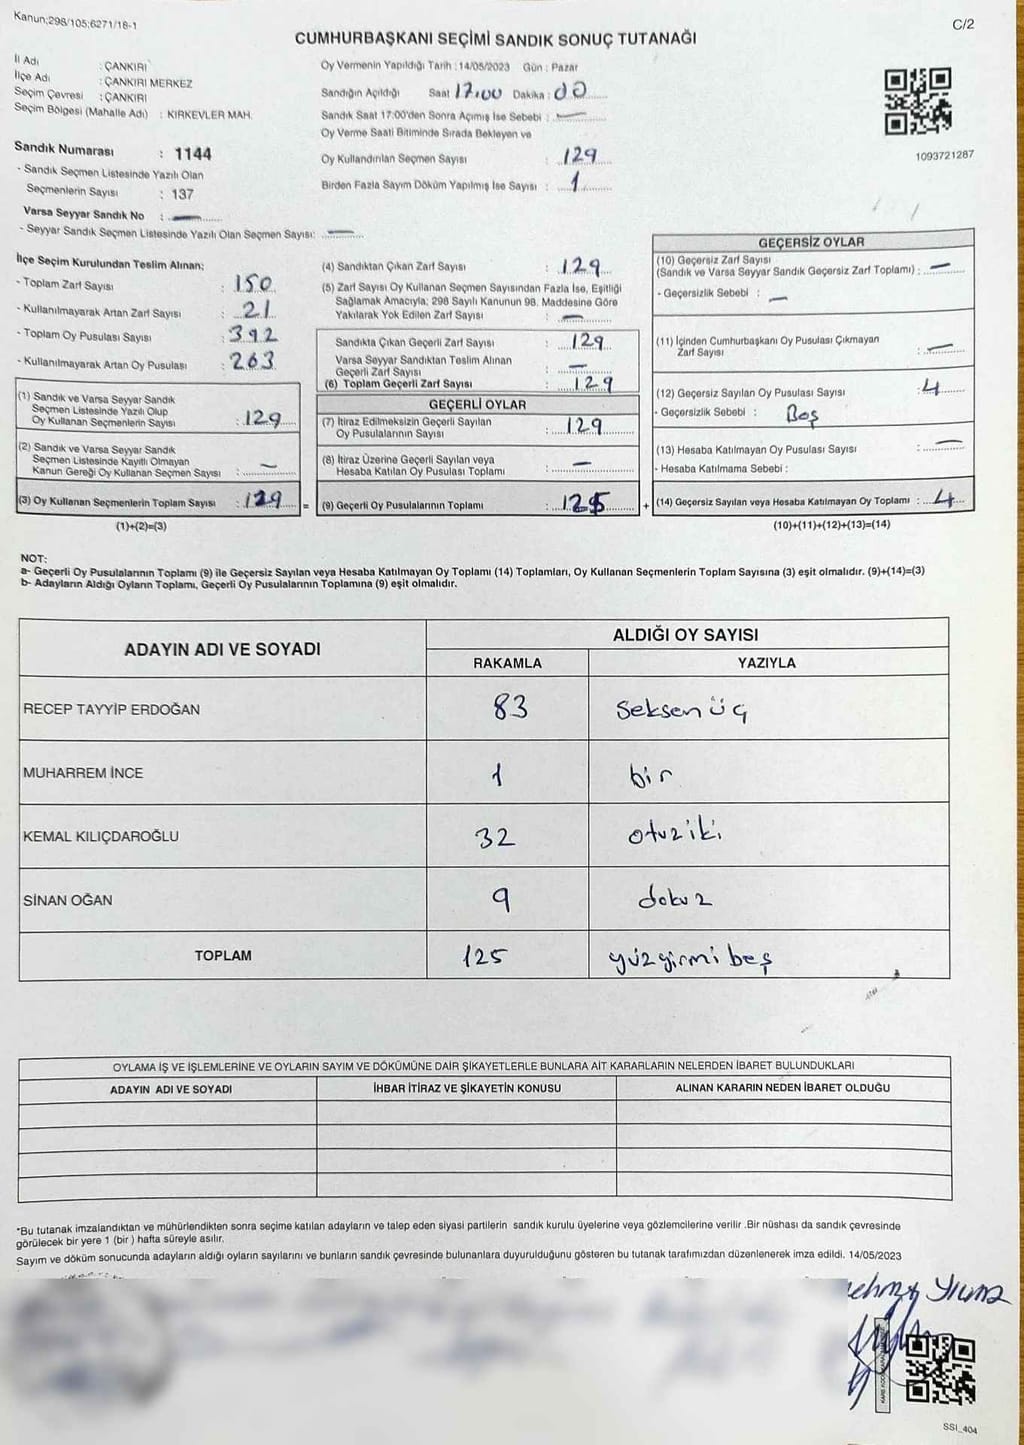 Kanun;298/105;6271/18-1
C/2
CUMHURBAŞKANI SEÇİMİ SANDIK SONUÇ TUTANAĞI
İl Adı : ÇANKIRI
İlçe Adı : ÇANKIRI MERKEZ
Seçim Çevresi : ÇANKIRI
Seçim Bölgesi (Mahalle Adı) : KIRKEVLER MAH.
Sandık Numarası : 1144
- Sandık Seçmen Listesinde Yazılı Olan
Seçmenlerin Sayısı : 137
Varsa Seyyar Sandık No : —
- Seyyar Sandık Seçmen Listesinde Yazılı Olan Seçmen Sayısı: —
Oy Vermenin Yapıldığı Tarih : 14/05/2023 Gün : Pazar
Sandığın Açıldığı Saat 17.00 Dakika : 00
Sandık Saat 17:00'den Sonra Açımış İse Sebebi : —
Oy Verme Saati Bitiminde Sırada Bekleyen ve
Oy Kullandırılan Seçmen Sayısı : 129
Birden Fazla Sayım Döküm Yapılmış İse Sayısı : 1
1093721287
İlçe Seçim Kurulundan Teslim Alınan:
- Toplam Zarf Sayısı : 150
- Kullanılmayarak Artan Zarf Sayısı : 21
- Toplam Oy Pusulası Sayısı : 392
- Kullanılmayarak Artan Oy Pusulası : 263
(1) Sandık ve Varsa Seyyar Sandık
Seçmen Listesinde Yazılı Olup
Oy Kullanan Seçmenlerin Sayısı : 129
(2) Sandık ve Varsa Seyyar Sandık
Seçmen Listesinde Kayıtlı Olmayan
Kanun Gereği Oy Kullanan Seçmen Sayısı : —
(3) Oy Kullanan Seçmenlerin Toplam Sayısı : 129 =
(1)+(2)=(3)
(4) Sandıktan Çıkan Zarf Sayısı : 129
(5) Zarf Sayısı Oy Kullanan Seçmen Sayısından Fazla İse, Eşitliği
Sağlamak Amacıyla; 298 Sayılı Kanunun 98. Maddesine Göre
Yakılarak Yok Edilen Zarf Sayısı : —
Sandıkta Çıkan Geçerli Zarf Sayısı : 129
Varsa Seyyar Sandıktan Teslim Alınan
Geçerli Zarf Sayısı : —
(6) Toplam Geçerli Zarf Sayısı : 129
GEÇERLİ OYLAR
(7) İtiraz Edilmeksizin Geçerli Sayılan
Oy Pusulalarının Sayısı : 129
(8) İtiraz Üzerine Geçerli Sayılan veya
Hesaba Katılan Oy Pusulası Toplamı : —
(9) Geçerli Oy Pusulalarının Toplamı : 125 +
GEÇERSİZ OYLAR
(10) Geçersiz Zarf Sayısı
(Sandık ve Varsa Seyyar Sandık Geçersiz Zarf Toplamı) : —
- Geçersizlik Sebebi : —
(11) İçinden Cumhurbaşkanı Oy Pusulası Çıkmayan
Zarf Sayısı : —
(12) Geçersiz Sayılan Oy Pusulası Sayısı : 4
- Geçersizlik Sebebi : Boş
(13) Hesaba Katılmayan Oy Pusulası Sayısı : —
- Hesaba Katılmama Sebebi :
(14) Geçersiz Sayılan veya Hesaba Katılmayan Oy Toplamı : 4
(10)+(11)+(12)+(13)=(14)
NOT:
a- Geçerli Oy Pusulalarının Toplamı (9) ile Geçersiz Sayılan veya Hesaba Katılmayan Oy Toplamı (14) Toplamları, Oy Kullanan Seçmenlerin Toplam Sayısına (3) eşit olmalıdır. (9)+(14)=(3)
b- Adayların Aldığı Oyların Toplamı, Geçerli Oy Pusulalarının Toplamına (9) eşit olmalıdır.
ADAYIN ADI VE SOYADI ALDIĞI OY SAYISI
RAKAMLA YAZIYLA
RECEP TAYYİP ERDOĞAN 83 Seksen üç
MUHARREM İNCE 1 bir
KEMAL KILIÇDAROĞLU 32 otuziki
SİNAN OĞAN 9 dokuz
TOPLAM 125 yüzyirmi beş
OYLAMA İŞ VE İŞLEMLERİNE VE OYLARIN SAYIM VE DÖKÜMÜNE DAİR ŞİKAYETLERLE BUNLARA AİT KARARLARIN NELERDEN İBARET BULUNDUKLARI
ADAYIN ADI VE SOYADI İHBAR İTİRAZ VE ŞİKAYETİN KONUSU ALINAN KARARIN NEDEN İBARET OLDUĞU
*Bu tutanak imzalandıktan ve mühürlendikten sonra seçime katılan adayların ve talep eden siyasi partilerin sandık kurulu üyelerine veya gözlemcilerine verilir .Bir nüshası da sandık çevresinde
görülecek bir yere 1 (bir ) hafta süreyle asılır.
Sayım ve döküm sonucunda adayların aldığı oyların sayılarını ve bunların sandık çevresinde bulunanlara duyurulduğunu gösteren bu tutanak tarafımızdan düzenlenerek imza edildi. 14/05/2023
SSİ_404